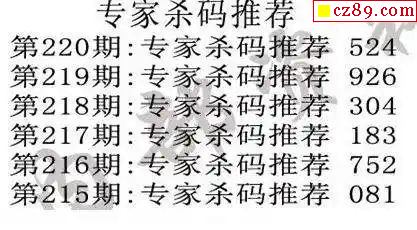 专家杀码推荐
cz89.com
第220期:专家杀码推荐 524
第219期:专家杀码推荐 926
第218期:专家杀码推荐 304
第217期:专家杀码推荐 183
第216期:专家杀码推荐 752
第215期:专家杀码推荐 081